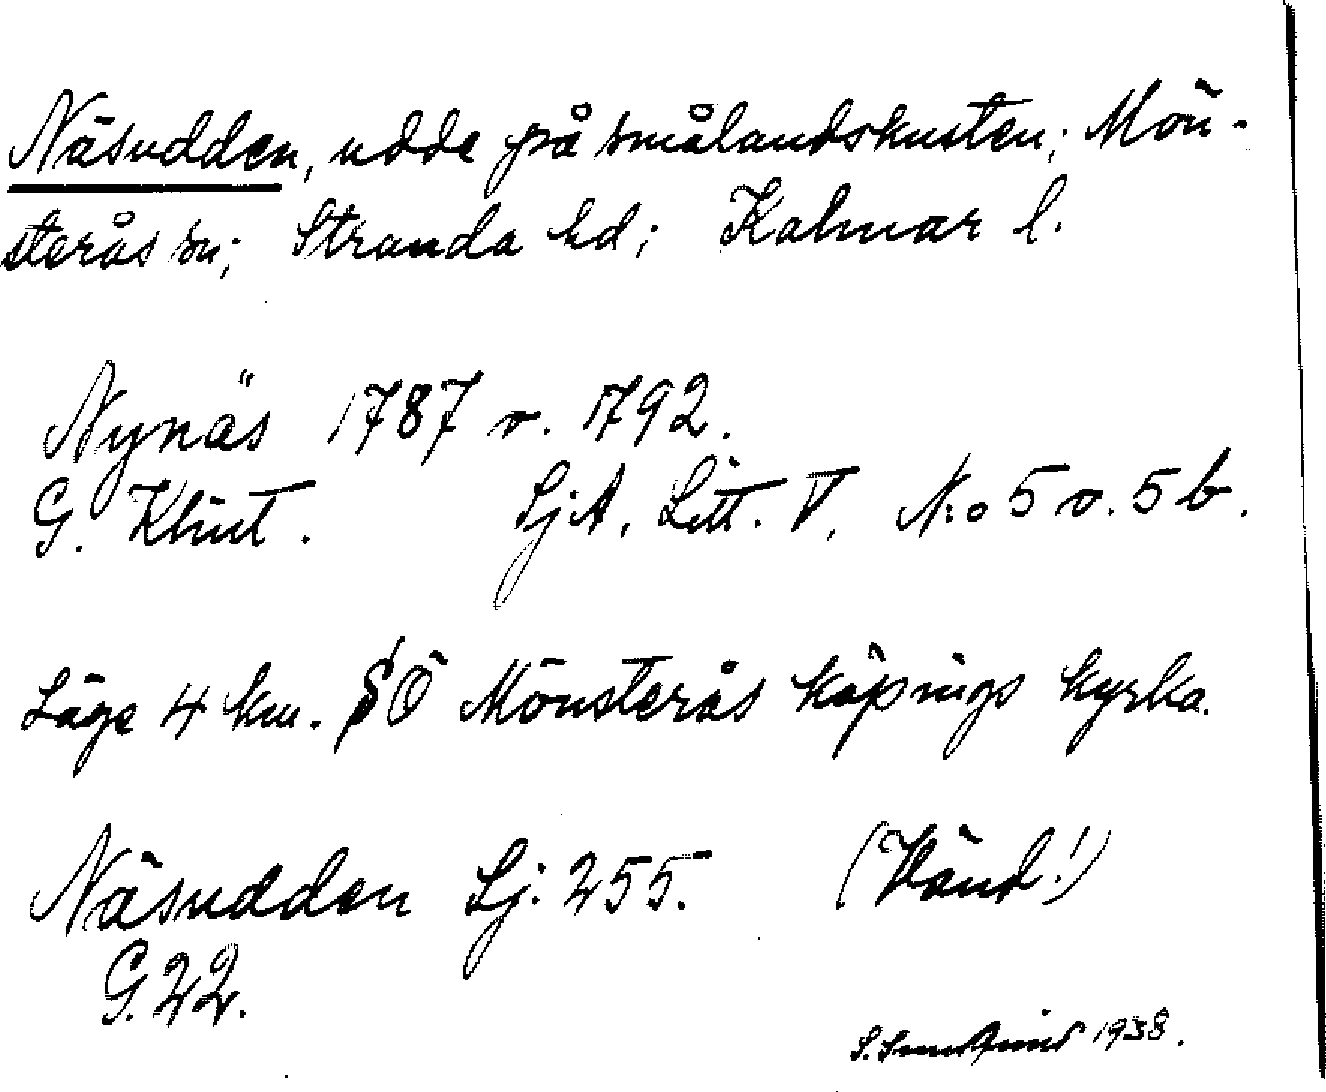 Näsudden, udde på smålandskusten; Mön-
sterås sn; Stranda hd; Kalmar l.
Nynäs 1787 o. 1792.
G. Klint. SjA, Litt. V, N:o 5 o. 5 b.
Läge 4 km. SÖ Mönsterås köpings kyrka.
Näsudden Sj. 255. (Vänd!)
G. 22.
1938.